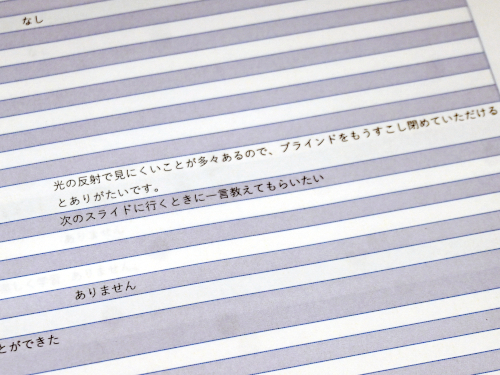 なし
光の反射で見にくいことが多々あるので、ブラインドをもうすこし閉めていただける
とありがたいです。
次のスライドに行くときに一言教えてもらいたい
ありません
とができた